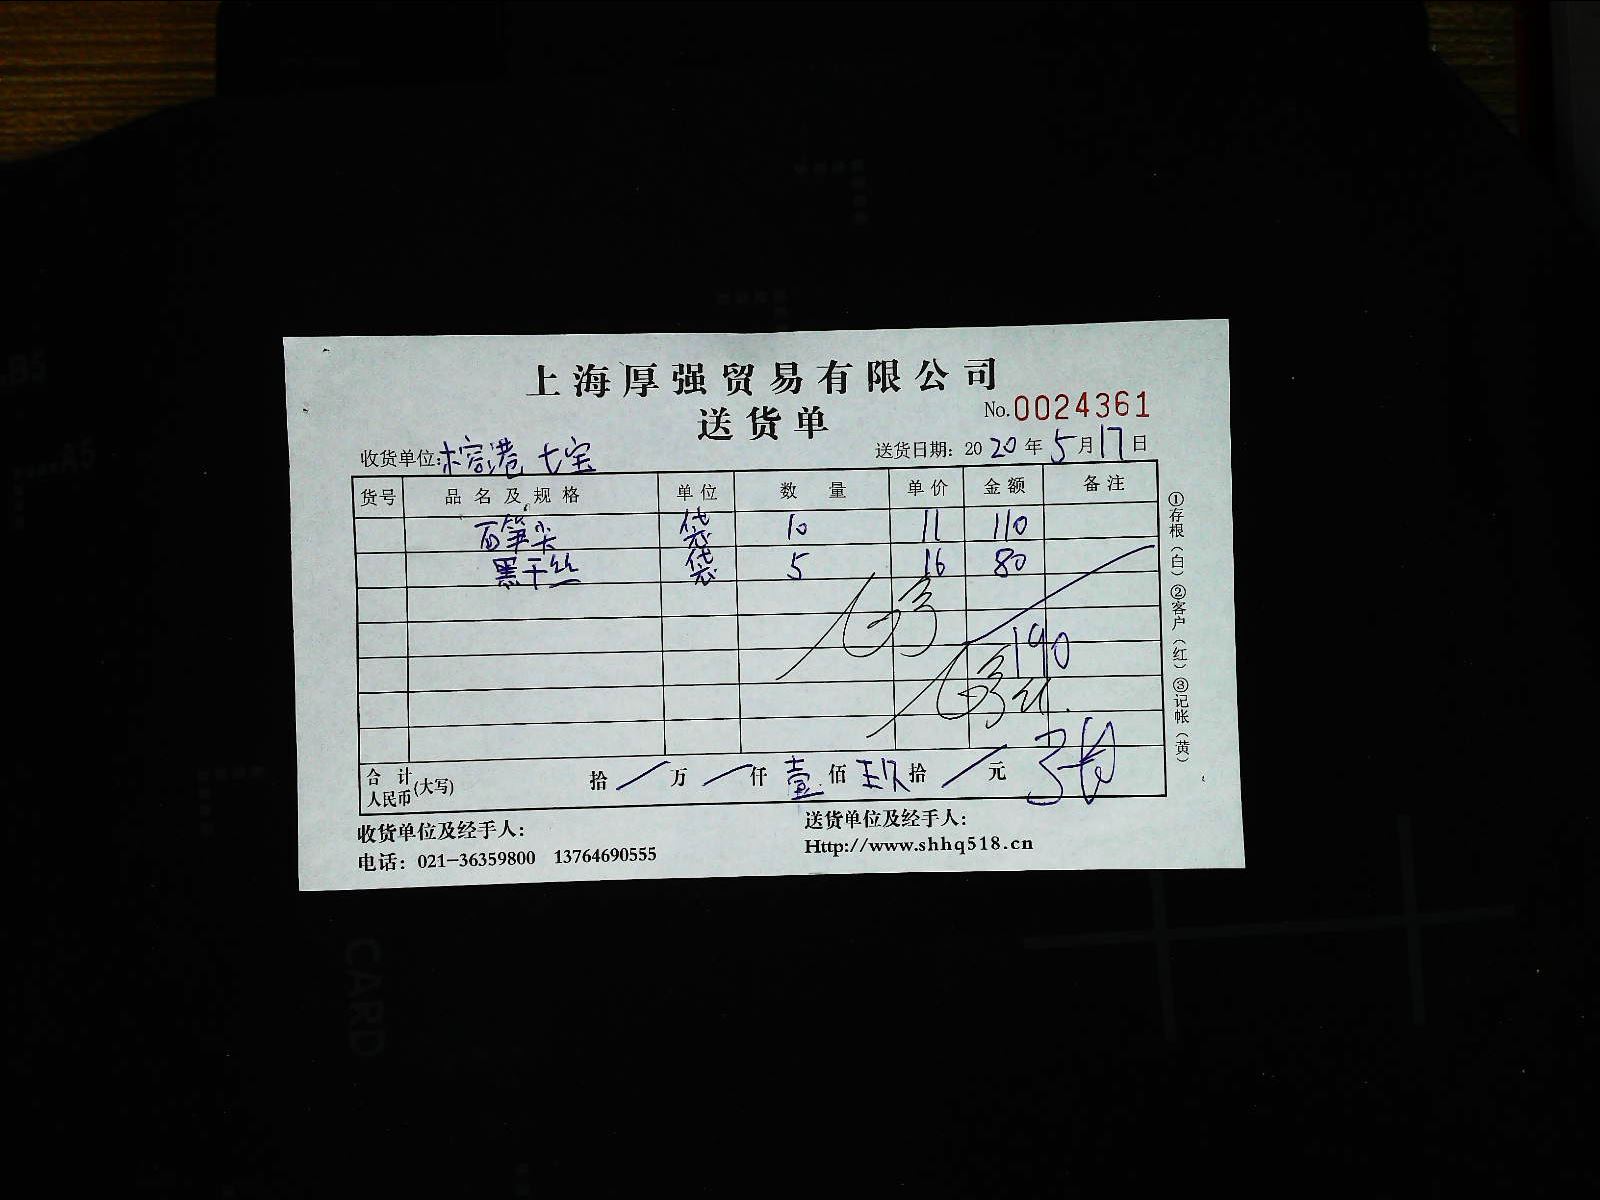 上海厚强贸易有限公司
送货单
No.0024361
收货单位:榕港 七宝
送货日期: 2020年5月17日
货号 品名及规格 单位 数量 单价 金额 备注
石笋尖 袋 10 11 110
黑干丝 袋 5 16 80
190
合计人民币(大写) 拾/万/仟壹佰玖拾/元
收货单位及经手人:
送货单位及经手人:
电话: 021-36359800 13764690555
Http://www.shhq518.cn
①存根(白)②客户(红)③记帐(黄)
CARD
A5
B5